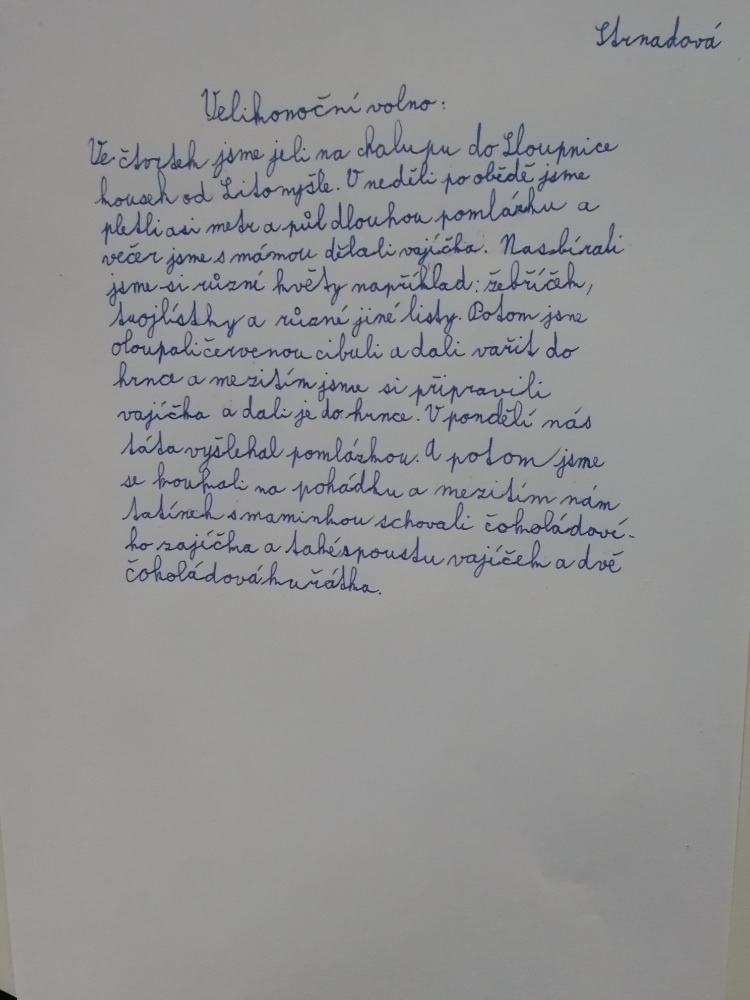 Strnadová
Velikonoční volno:
Ve čtvrtek jsme jeli na chalupu do Sloupnice
kousek od Litomyšle. V neděli po obědě jsme
pletli asi metr a půl dlouhou pomlázku a
večer jsme s mámou dělali vajíčka. Nasbírali
jsme si různí květy například: žebříček,
trojlístky a různé jiné listy. Potom jsme
oloupali červenou cibuli a dali vařit do
hrnce a mezitím jsme si připravili
vajíčka a dali je do hrnce. V pondělí nás
táta vyšlehal pomlázkou. A potom jsme
se koukali na pohádku a mezitím nám
tatínek s maminkou schovali čokoládoví-
ho zajíčka a také spoustu vajíček a dvě
čokoládová kuřátka.